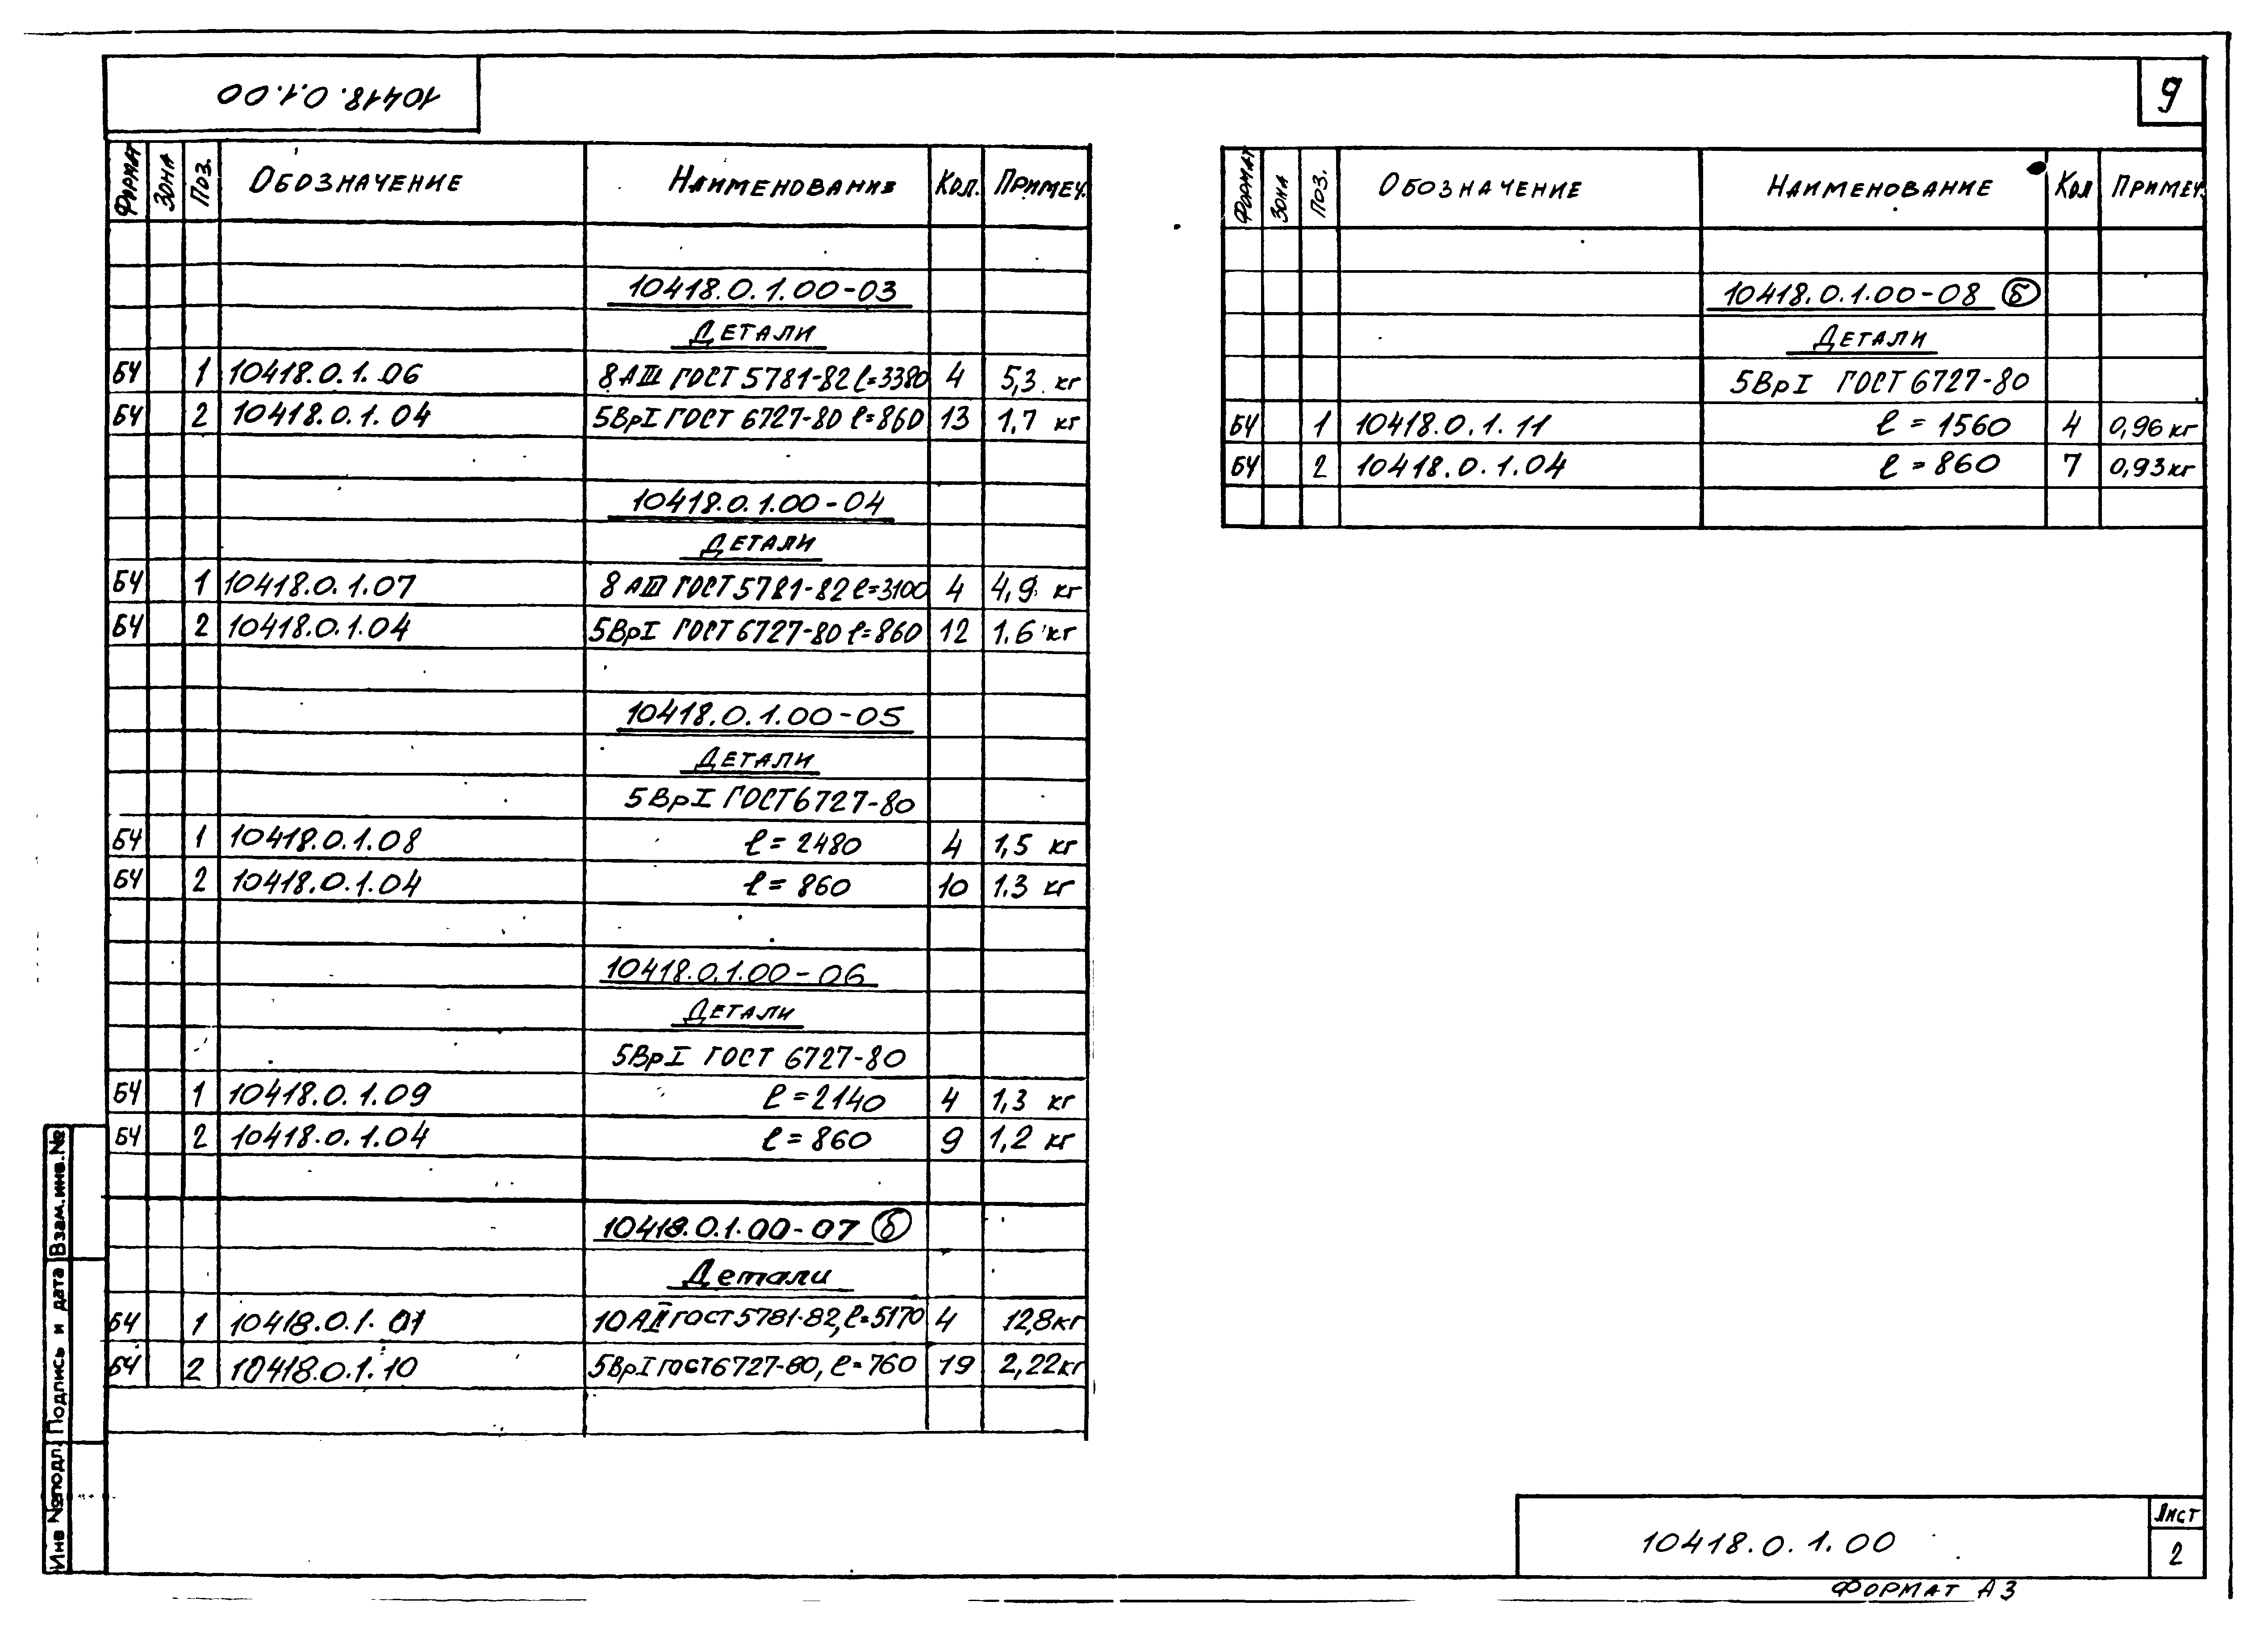 10418.0.1.00
9
Формат Зона Поз. Обозначение Наименование Кол. Примеч.
10418.0.1.00-03
Детали
БЧ 1 10418.0.1.06 8АIII ГОСТ 5781-82 ℓ=3380 4 5,3 кг
БЧ 2 10418.0.1.04 5ВрI ГОСТ 6727-80 ℓ=860 13 1,7 кг
10418.0.1.00-04
Детали
БЧ 1 10418.0.1.07 8АIII ГОСТ 5781-82 ℓ=3100 4 4,9 кг
БЧ 2 10418.0.1.04 5ВрI ГОСТ 6727-80 ℓ=860 12 1.6 кг
10418.0.1.00-05
Детали
5ВрI ГОСТ 6727-80
БЧ 1 10418.0.1.08 ℓ=2480 4 1,5 кг
БЧ 2 10418.0.1.04 ℓ=860 10 1.3 кг
10418.0.1.00-06
Детали
5ВрI ГОСТ 6727-80
БЧ 1 10418.0.1.09 ℓ=2140 4 1,3 кг
БЧ 2 10418.0.1.04 ℓ=860 9 1,2 кг
10418.0.1.00-07 б
Детали
БЧ 1 10418.0.1.01 ГОСТ 5781-82, ℓ=5170 4 12,8кг
БЧ 2 10418.0.1.10 5ВрI ГОСТ 6727-80, ℓ=760 19 2,22кг
Формат Зона Поз. Обозначение Наименование Кол Примеч.
10418.0.1.00-08 б
Детали
5ВрI ГОСТ 6727-80
БЧ 1 10418.0.1.11 ℓ=1560 4 0,96кг
БЧ 2 10418.0.1.04 ℓ=860 7 0,93кг
Инв №подл. Подпись и дата Взам.инв.№
10418.0.1.00
Лист
2
Формат А3